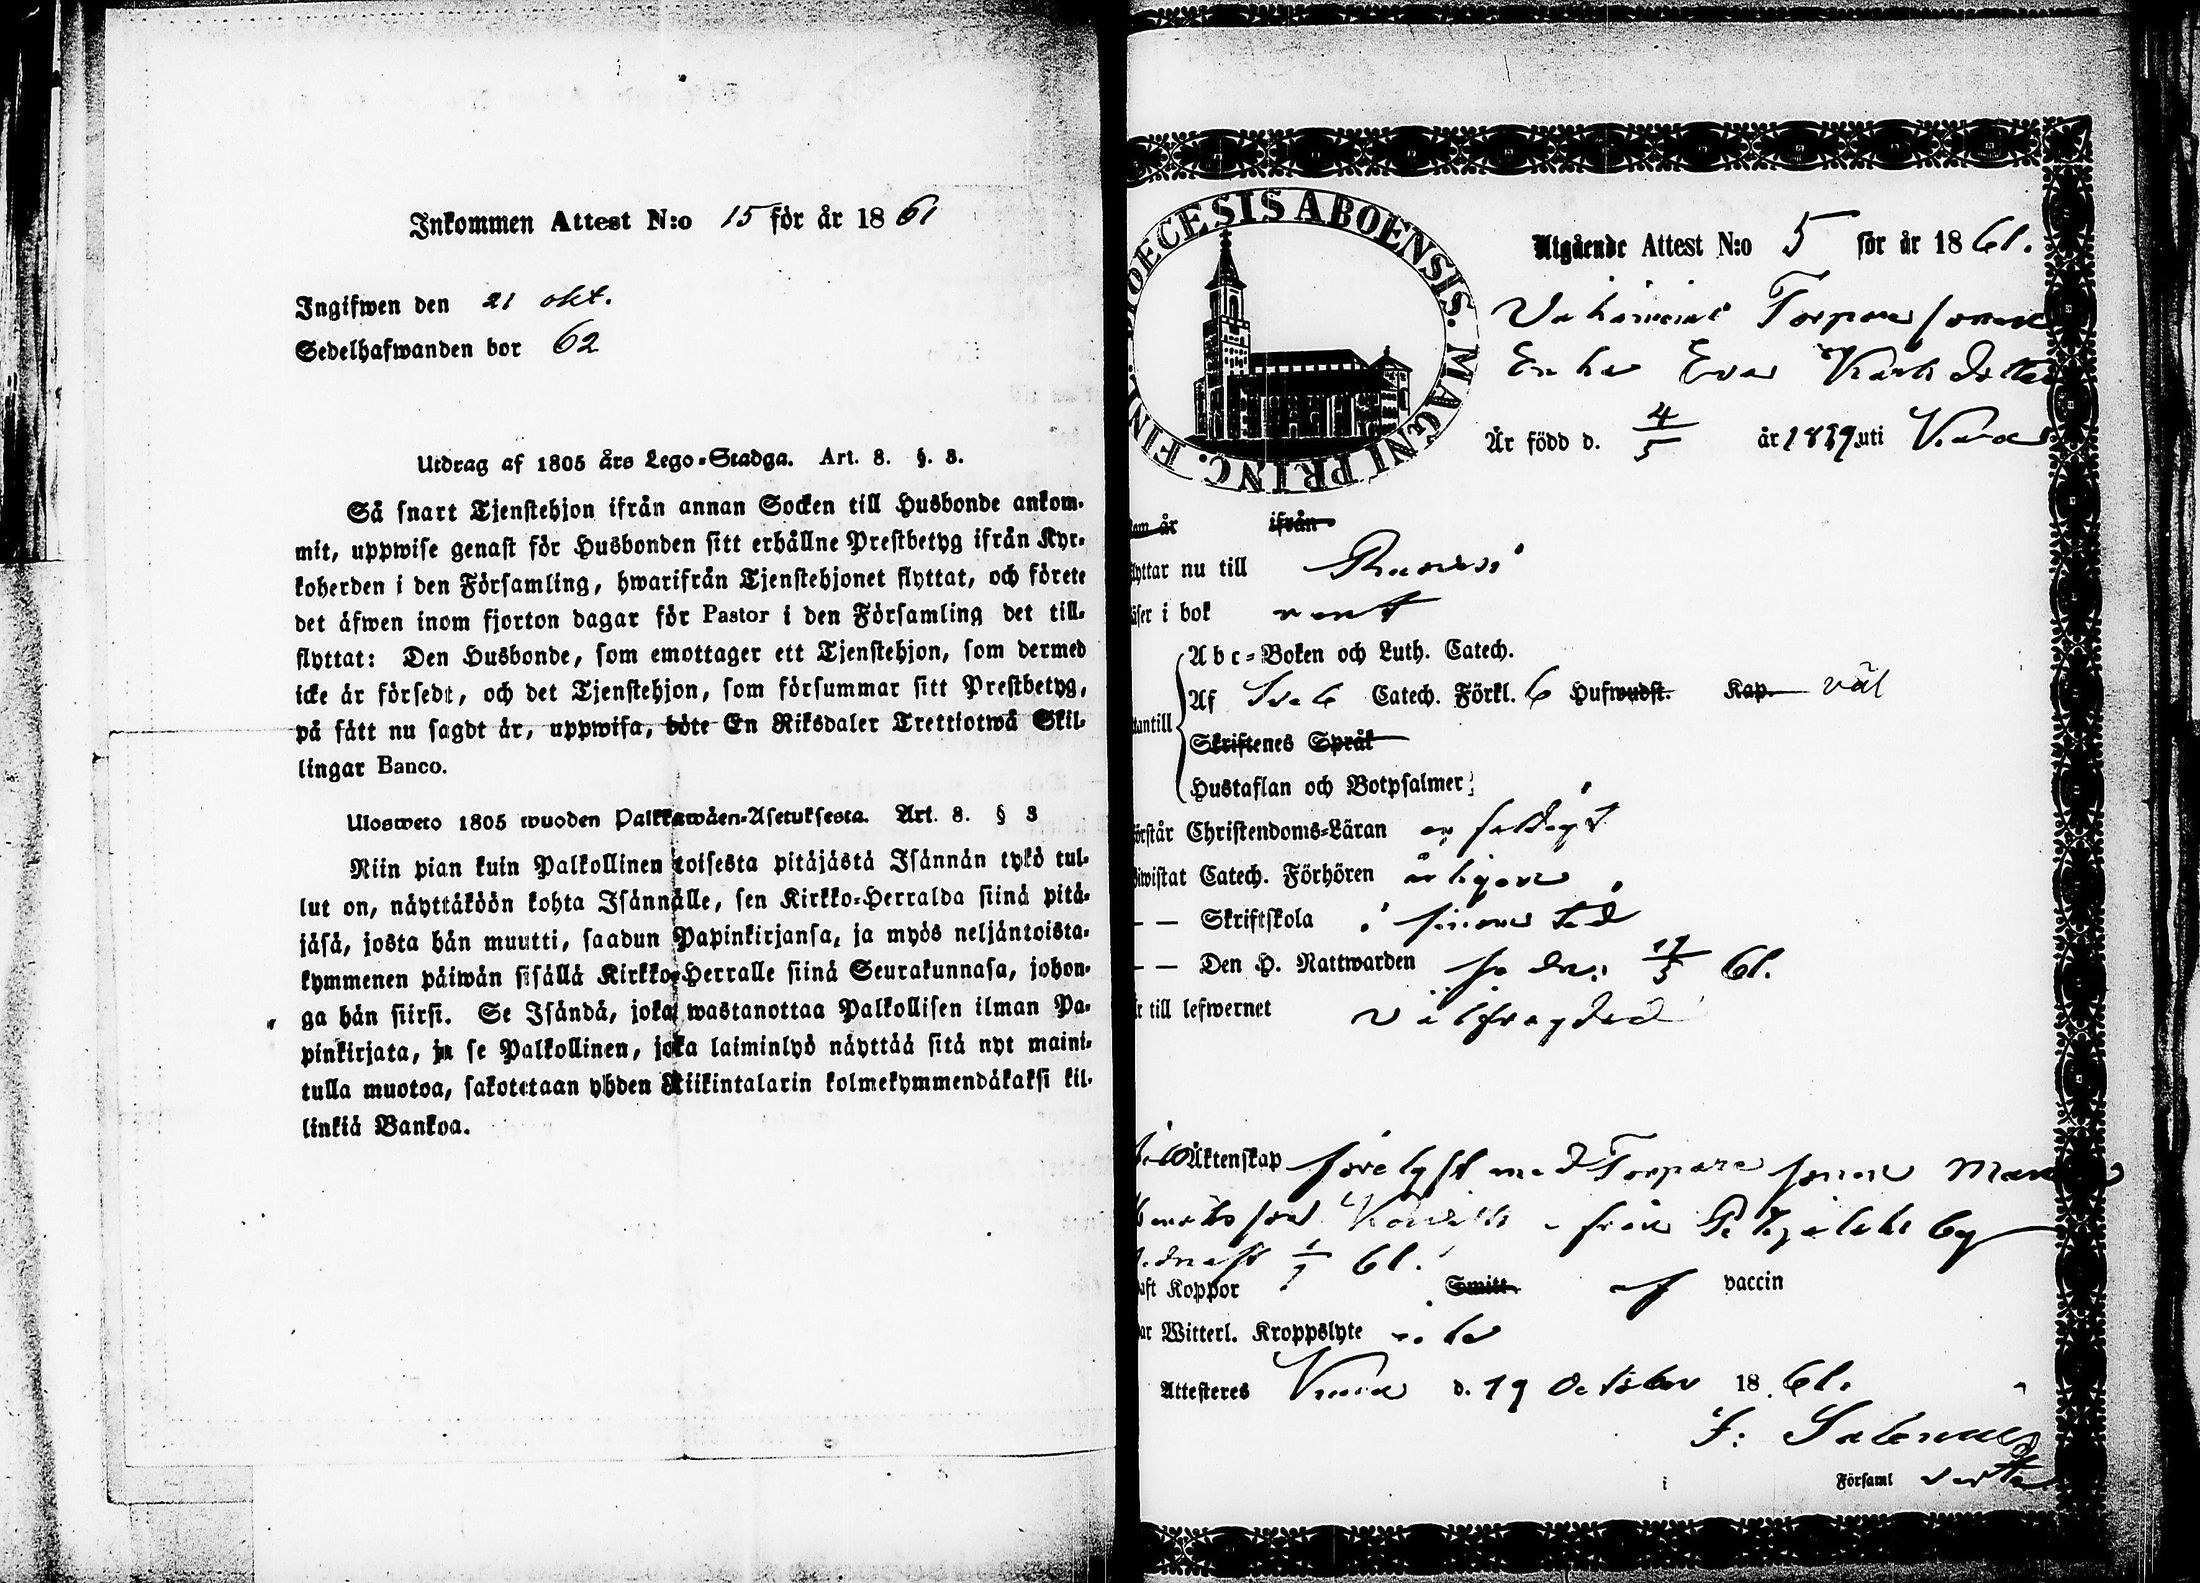 Inkommen Attest N:o 15 för år 18 61
Ingifwen den 21 okt.
Sedelhafwanden bor 62
Utdrag af 1805 års Lego-Stadga. Art. 8. §. 3.
Så snart Tjenstehjon ifrån annan Socken till Husbonde ankom-
mit, uppwise genast för Husbonden sitt erhållne Prestbetyg ifrån Kyr-
koherden i den Församling, hwarifrån Tjenstehjonet flyttat, och förete
det äfwen inom fjorton dagar för Pastor i den Församling det till-
flyttat: Den Husbonde, som emottager ett Tjenstehjon, som dermed
icke är försedt, och det Tjenstehjon, som försummar sitt Prestbetyg,
på sätt nu sagdt är, uppwisa, böte En Riksdaler Trettiotwå Skil-
lingar Banco.
Ulosweto 1805 wuoden Palkkawäen-Asetuksesta. Art. 8. § 3
Niin pian kuin Palkollinen toisesta pitäjästä Isännän tykö tul-
lut on, näyttäköön kohta Isännälle, sen Kirkko-Herralda siinä pitä-
jäsä, josta hän muutti, saadun Papinkirjansa, ja myös neljäntoista-
kymmenen päiwän sisällä Kirkko-Herralle siinä Seurakunnasa, johon-
ga hän siirsi. Se Isändä, joka wastanottaa Palkollisen ilman Pa-
pinkirjata, ja se Palkollinen, joka laiminlyö näyttää sitä nyt maini-
tulla muotoa, sakotetaan yhden Riikintalarin kolmekymmendäkaksi kil-
linkiä Bankoa.
DIOECESIS ABOENSIS. MAGNI PRINC. FINL.
Utgående Attest N:o 5 för år 18 61.
Torpare sonen
Enka Eva Karlsdotter
Är född d. 4/5 år 1839 uti
ifrån
flyttar nu till
läser i bok rent
Abc-Boken och Luth. Catech.
Af Sveb Catech. Förkl. 6 Hufwudst. Kap. väl
utantill
Skriftenes Språk
Hustaflan och Botpsalmer
förstår Christendoms-Läran enfaldigt
biwistat Catech. Förhören årligen
— — Skriftskola i sinom tid
— — Den H. Nattwarden 61.
är till lefwernet välfrägdad
Äktenskap förelyst med Torpare sonen
från by
61.
haft Koppor Smitt af vaccin
har Witterl. Kroppslyte icke
Attesteres d. 19 October 18 61.
i Församl